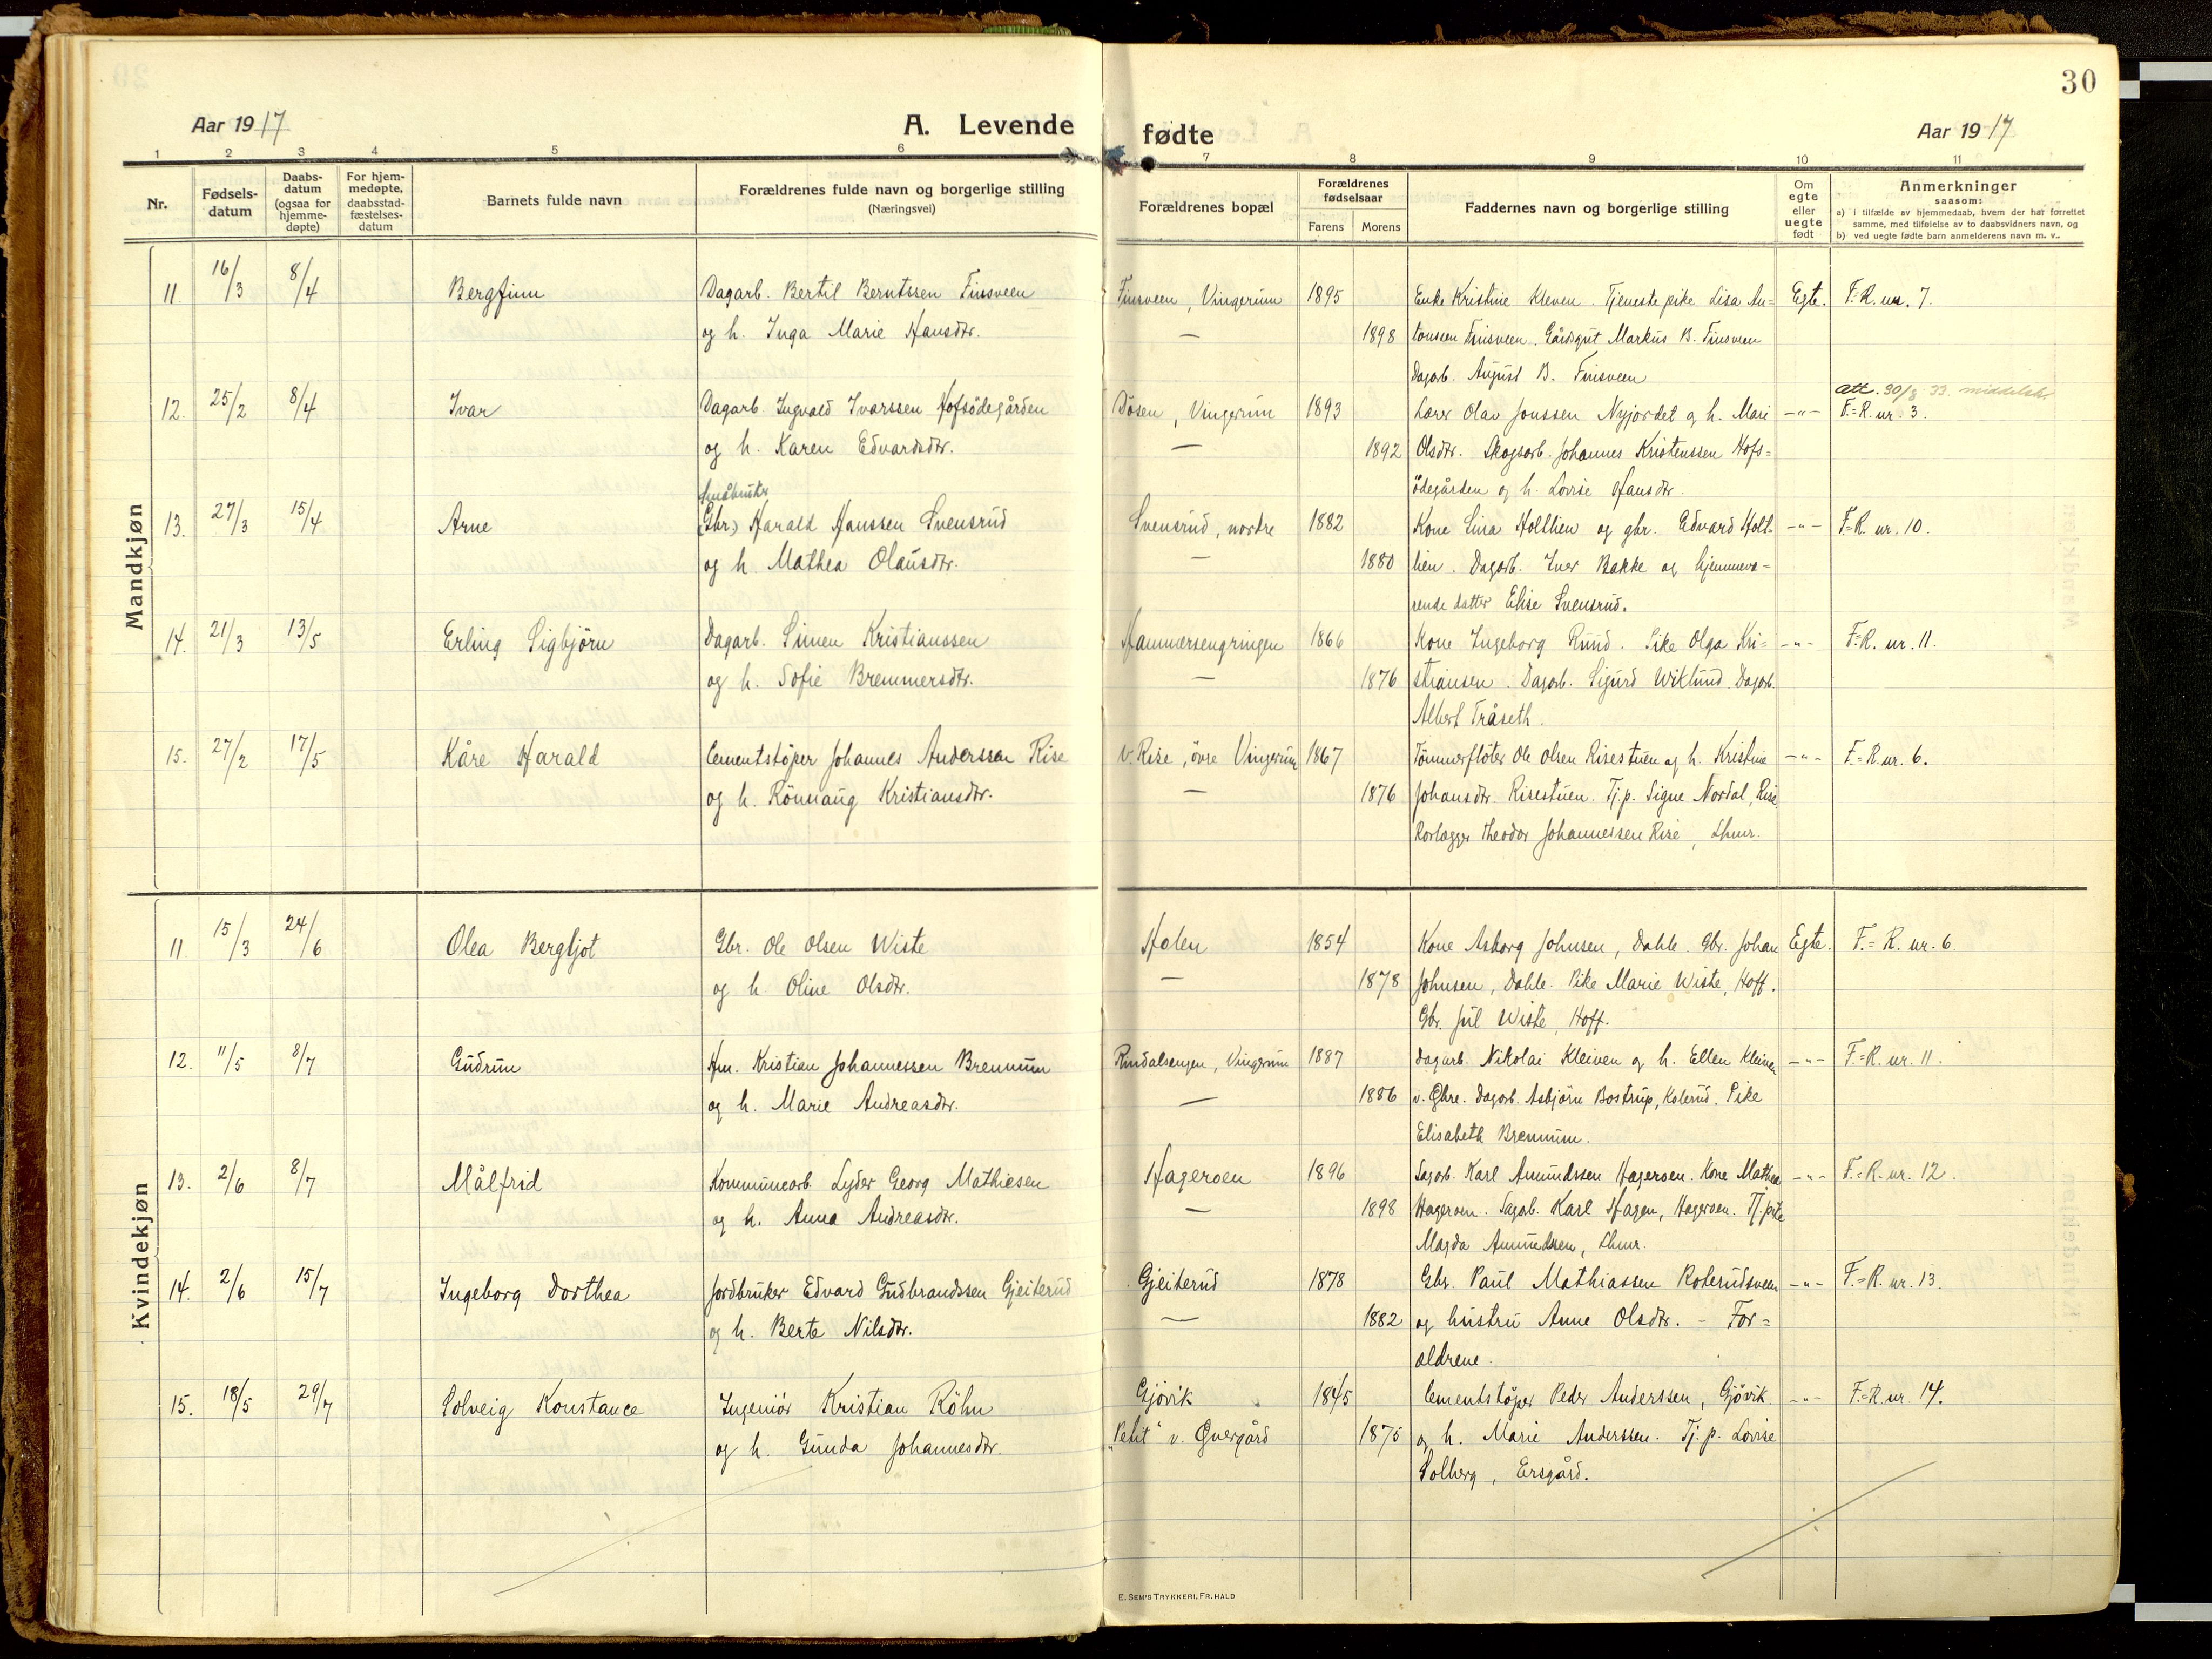 30
Aar 1917
A. Levende fødte
Aar 1917
1 2 3 4 5 6 7 8 9 10 11
Nr.
Fødsels-
datum
Daabs-
datum
(ogsaa for
hjemme-
døpte)
For hjem-
medøpte,
daabsstad-
fæstelses-
datum
Barnets fulde navn
Forældrenes fulde navn og borgerlige stilling
(Næringsvei)
Forældrenes bopæl
Forældrenes
fødselsaar
Farens Morens
Faddernes navn og borgerlige stilling
Om
egte
eller
uegte
født
Anmerkninger
saasom:
a) i tilfælde av hjemmedaab, hvem der har forrettet
samme, med tilføielse av to daabsvidners navn, og
b) ved uegte fødte barn anmelderens navn m. v..
Mandkjøn
11 16/3 8/4 Bergfinn Dagarb. Bertil Berntssen Finsveen Finsveen, Vingerum 1895 Enke Kristine Kleven. Tjenestepike Lisa An= Egte. F=R. nr. 7.
og h. Inga Marie Hansdtr. — 1898 tonsen Finsveen. Gårdsgut Markus B. Finsveen
Dagarb. August B. Finsveen
att. 30/8 33. middelsk.
12. 25/2 8/4 Ivar Dagarb. Ingvald Ivarssen Hofsödegården Dösen, Vingerum 1893 Lærer Olav Jonssen Nyjordet og h. Mari -"- F.=R. nr. 3.
og h. Karen Edvardsdtr. — 1892 Olsdtr. Skogsarb. Johannes Kristenssen Hofs=
ödegården og h. Lovise Hansdtr.
Småbruker
13. 27/3 15/4 Arne (Gbr.) Harald Hanssen Svensrud Svensrud, nordre 1882 Kone Lina Holthen og gbr. Edvard Holt= -"- F=R. nr. 10.
og h. Mathea Olausdtr. — 1880 hen. Dagarb. Iver Bakke og hjemmevæ=
rende datter Elise Svensrud.
14. 21/3 13/5 Erling Sigbjörn Dagarb. Simen Kristianssen Hammersengringen 1866 Kone Ingeborg Ruud. Pike Olga Kri= -"- F=R. nr. 11.
og h. Sofie Bremmersdtr. — 1876 stiansen. Dagarb. Sigurd Wiklund. Dagarb.
Albert Tråseth.
15. 27/2 17/5 Kåre Harald Cementstöper Johannes Anderssen Rise v. Rise, övre Vingerum 1867 Tömmerflöter Ole Olsen Risestuen og h. Kristine -"- F.=R. nr. 6.
og h. Rönnaug Kristiansdtr. — 1876 Johansdtr. Risestuen. Tj.p. Signe Nordal, Rise
Rorlægger Theodor Johannessen Rise, Lhmr.
Kvindekjøn
11. 15/3 24/6 Olea Bergljot Gbr. Ole Olsen Wiste Holen 1854 Kone Asborg Johnsen, Dahle. Gbr. Johan Egte. F.=R. nr. 6.
og h. Oline Olsdtr. — 1878 Johnsen, Dahle. Pike Marie Wiste, Hoff.
Gbr. Jul Wiste, Hoff.
12. 11/5 8/7 Gudrun Hm. Kristian Johannessen Brennum Rindalsengen, Vingerum 1887 Dagarb. Nikolai Kleiven og h. Ellen Kleiven -"- F=R. nr. 11.
og h. Marie Andreasdtr. — 1886 v. Öhre. Dagarb. Asbjörn Bostrup, Kolerud. Pike
Elisabeth Brennum.
13. 2/6 8/7 Målfrid Kommunearb. Lyder Georg Mathiesen Hageroen 1896 Sagarb. Karl Amundssen Hageroen. Kone Mathea -"- F.=R. nr. 12.
og h. Anna Andreasdtr. — 1898 Hageroen. Sagarb. Karl Hagen, Hageroen. Tj.pike
Magda Amundssen, Lhmr.
14. 2/6 15/7 Ingeborg Dorthea Jordbruker Edvard Gudbrandssen Gjeiterud Gjeiterud 1878 Gbr. Paul Mathiassen Roterudsveen -"- F.=R. nr. 13.
og h. Berte Nilsdtr. — 1882 og hustru Anne Olsdtr. - For=
ældrene.
15. 18/5 29/7 Solveig Konstance Ingeniör Kristian Röhn Gjövik 1845 Cementstöper Peder Anderssen, Gjövik. -"- F.=R. nr. 14.
og h. Gunda Johannesdtr. "Petit" v. Övergård 1875 og h. Marie Anderssen. Tj. p. Lovise
Solberg, Ersgård.
E. SEM'S TRYKKERI, FR.HALD